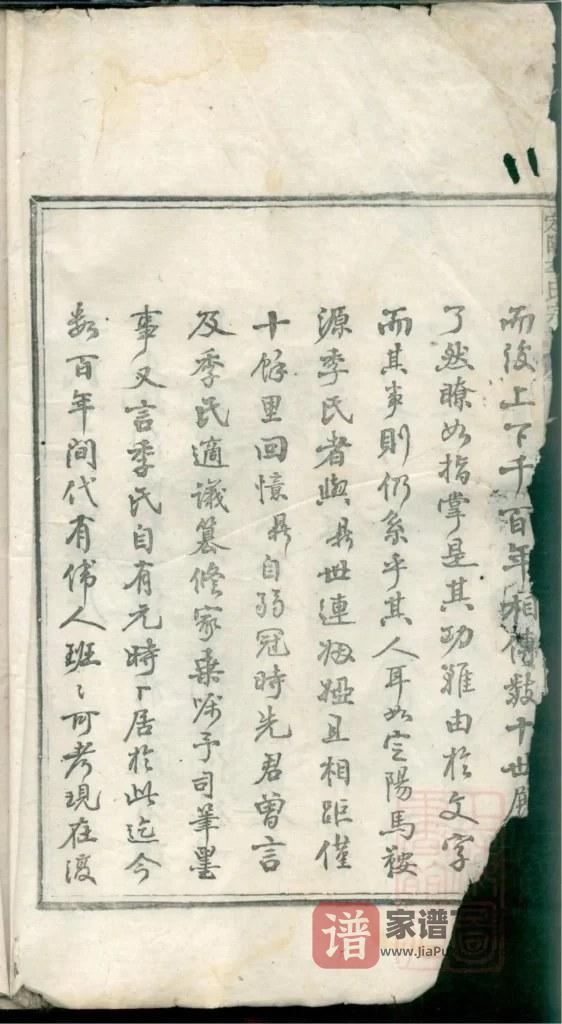 而後上下千百年相傳數十世
了然瞭如指掌是其功雖由於文字
而其事則仍系乎其人耳如定陽馬鞍
源季氏者與昜世連姻婭且相距僅
十餘里回憶昜自弱冠時先君曾言
及季氏適議纂修家乘嘱予司筆墨
事又言季氏自有元時卜居於此迄今
数百年间代有偉人班〻可考現在渡
11
谱
家谱
www.JiaPu